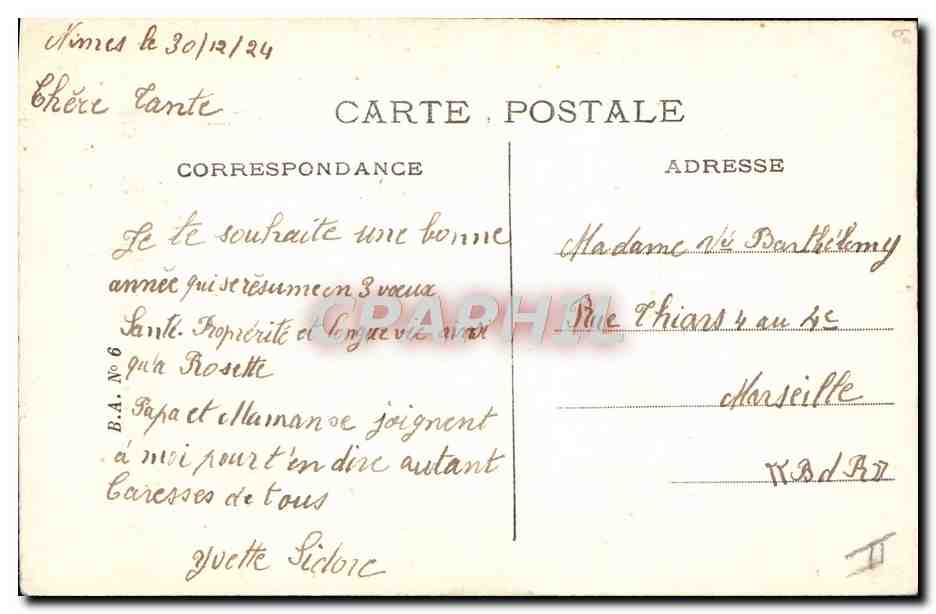 Nimes le 30/12/24
Chère Tante
CARTE POSTALE
CORRESPONDANCE
ADRESSE
Je te souhaite une bonne
année qui se résume en 3 vœux
Santé. Proprérité et longue vie ainsi
qu'a Rosette
Papa et Maman se joignent
à moi pour t'en dire autant
Caresses de tous
Yvette Sidore
B.A. No 6
Madame Vé Barthélemy
Rue Thiars 4 au 4e
Marseille
B d R
CPAPHIL
II